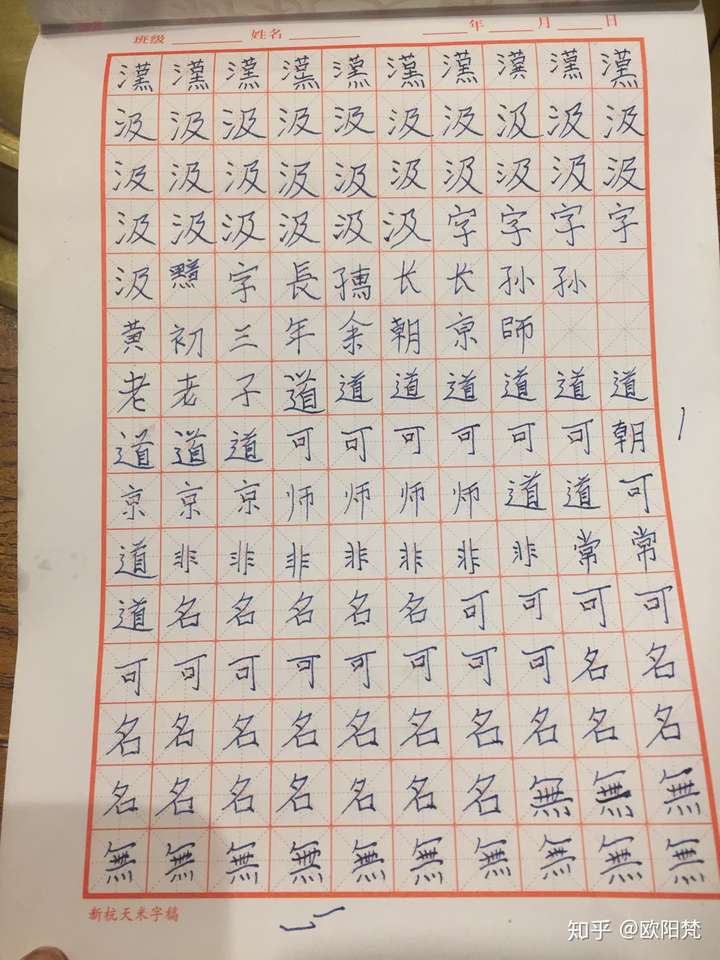 班级 姓名 年 月 日
漢 漢 漢 漢 漢 漢 漢 漢 漢 漢
汲 汲 汲 汲 汲 汲 汲 汲 汲 汲
汲 汲 汲 汲 汲 汲 汲 汲 汲 汲
汲 汲 汲 汲 汲 汲 字 字 字 字
汲 黯 字 長 孺 长 长 孙 孙
黄 初 三 年 余 朝 京 師
老 老 子 道 道 道 道 道 道 道
道 道 道 可 可 可 可 可 可 朝
京 京 京 师 师 师 师 道 道 可
道 非 非 非 非 非 非 非 常 常
道 名 名 名 名 名 可 可 可 可
可 可 可 可 可 可 可 可 名 名
名 名 名 名 名 名 名 名 名 名
名 名 名 名 名 名 名 無 無 無
無 無 無 無 無 無 無 無 無 無
新杭天米字稿
知乎 @欧阳梵